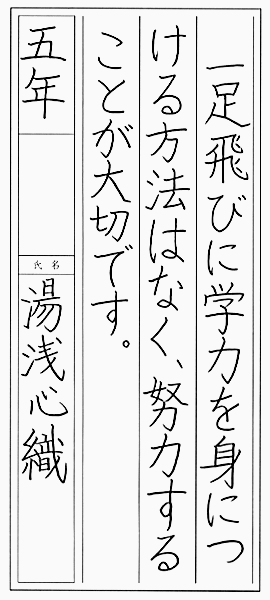 一足飛びに学力を身につ
ける方法はなく、努力する
ことが大切です。
五年
氏名
湯浅心織